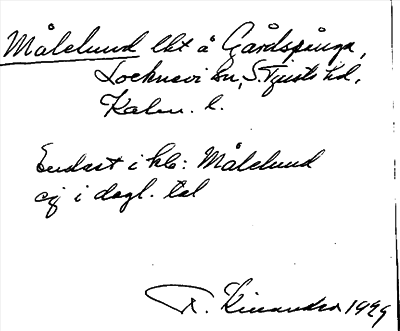 Målelund lht å Gårdspånga,
Locknevi sn, S. Tjusts hd,
Kalm. l.
Endast i kb: Målelund
ej i dagl. tal
R. Kinander 1949